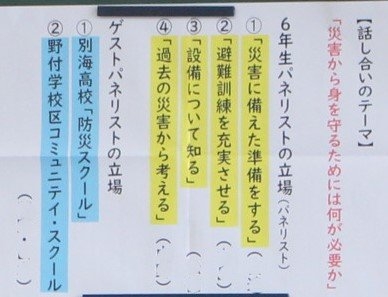 【話し合いのテーマ】
「災害から身を守るためには何が必要か」
6年生パネリストの立場(パネリスト)
①「災害に備えた準備をする」(
②「避難訓練を充実させる」(
③「設備について知る」(
④「過去の災害から考える」(
ゲストパネリストの立場
①別海高校「防災スクール」
②野付学校区コミュニティ・スクール